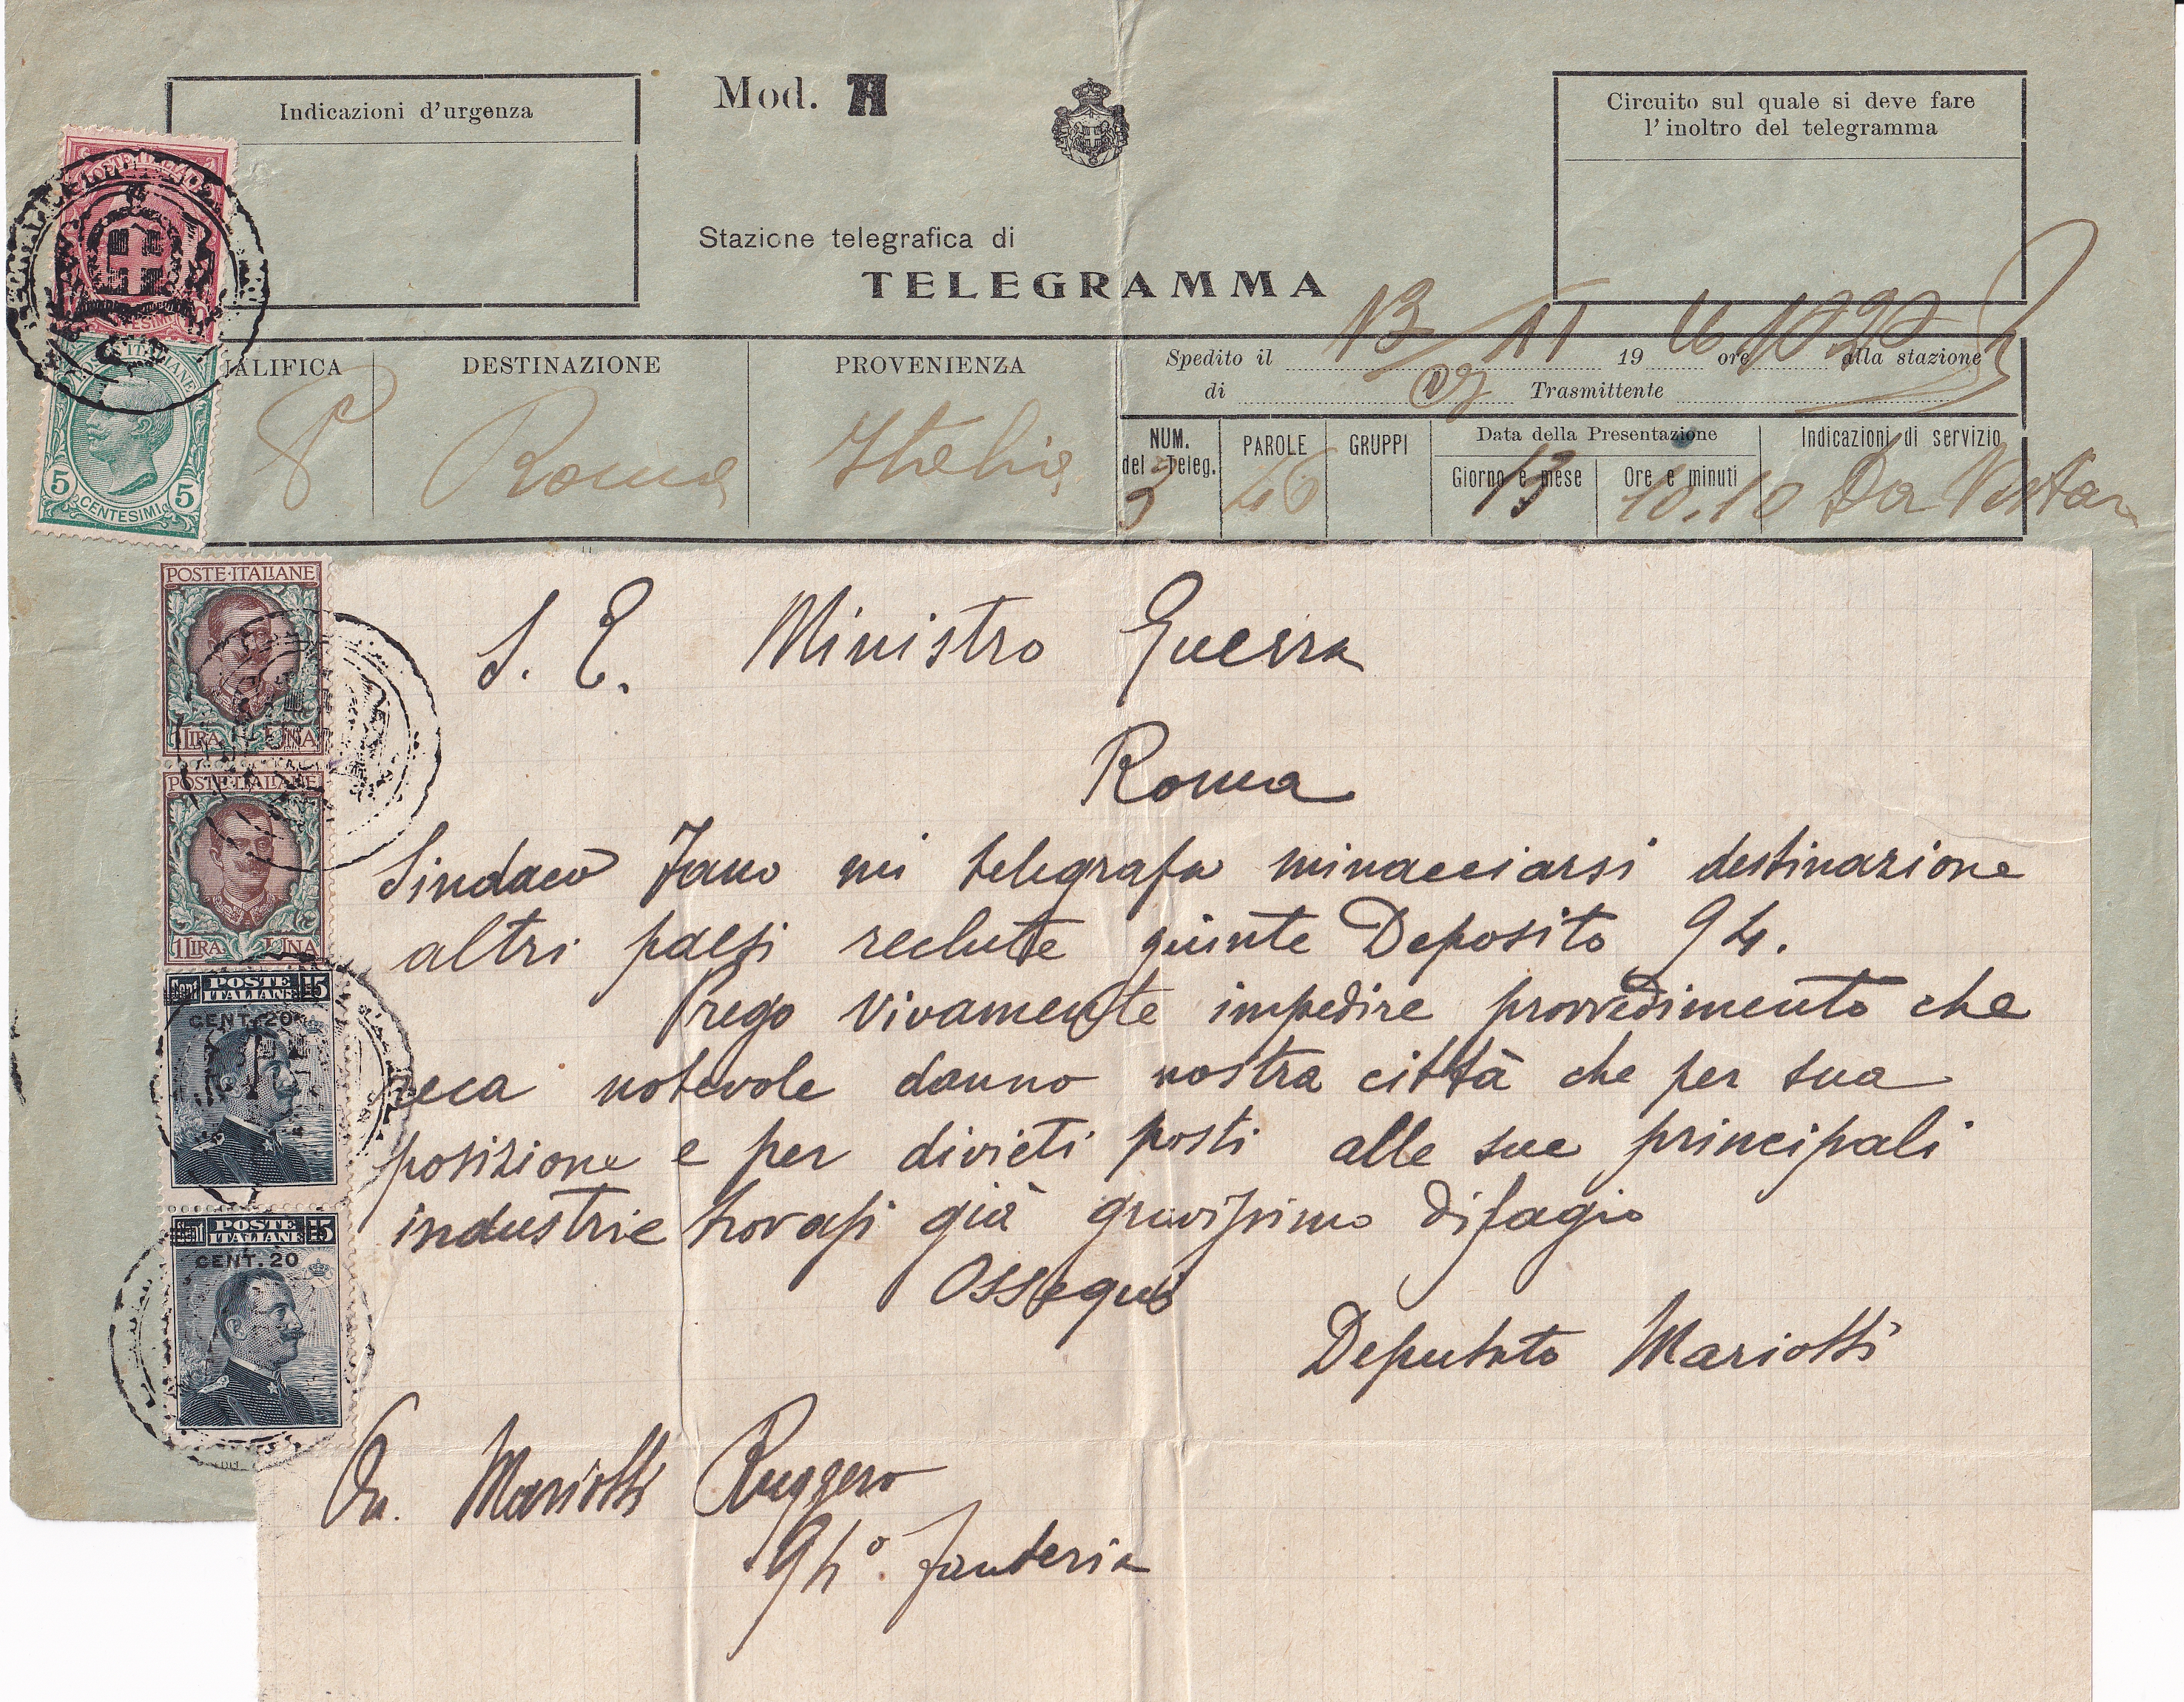 Indicazioni d'urgenza
Mod. A
Circuito sul quale si deve fare
l'inoltro del telegramma
Stazione telegrafica di
TELEGRAMMA
ALIFICA
DESTINAZIONE
PROVENIENZA
Spedito il 13/11 1916 ore 10 20 alla stazione
di Trasmittente
P Roma Italia
NUM. del Teleg. PAROLE GRUPPI Data della Presentazione Indicazioni di servizio
Giorno e mese Ore e minuti
3 46 13 10.10 Da
10 CENTESIMI 10
POSTE ITALIANE
5 CENTESIMI 5
POSTE·ITALIANE
1 LIRA UNA
POSTE·ITALIANE
1 LIRA UNA
Cent POSTE ITALIANE 15
CENT. 20
Cent POSTE ITALIANE 15
CENT. 20
S. E. Ministro Guerra
Roma
Sindaco Fano mi telegrafa minacciarsi destinazione
altri paesi reclute giunte Deposito 94.
Prego vivamente impedire provvedimento che
reca notevole danno nostra città che per sua
posizione e per divieti posti alle sue principali
industrie trovasi già gravissimo disagio
Ossequi
Deputato Mariotti
On. Mariotti Ruggero
94° fanteria